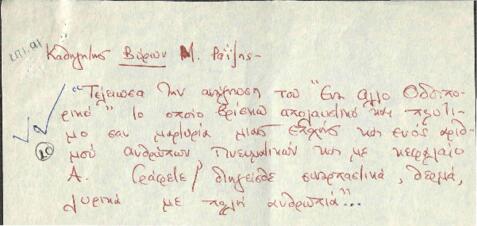 Καθηγητής Βύρων Μ. Ραΐζης-
"Τελείωσα την ανάγνωση του "Ένα άλλο Οδοιπο-
ρικό" το οποίο βρίσκω απολαυστικό και πολύτι-
μο σαν μαρτυρία μιας εποχής και ενός αριθ-
μού ανθρώπων πνευματικών και με κεφαλαίο
Α. Γράφετε/διηγείσθε συναρπαστικά, θερμά,
λυρικά με πολλή ανθρωπιά"...
10